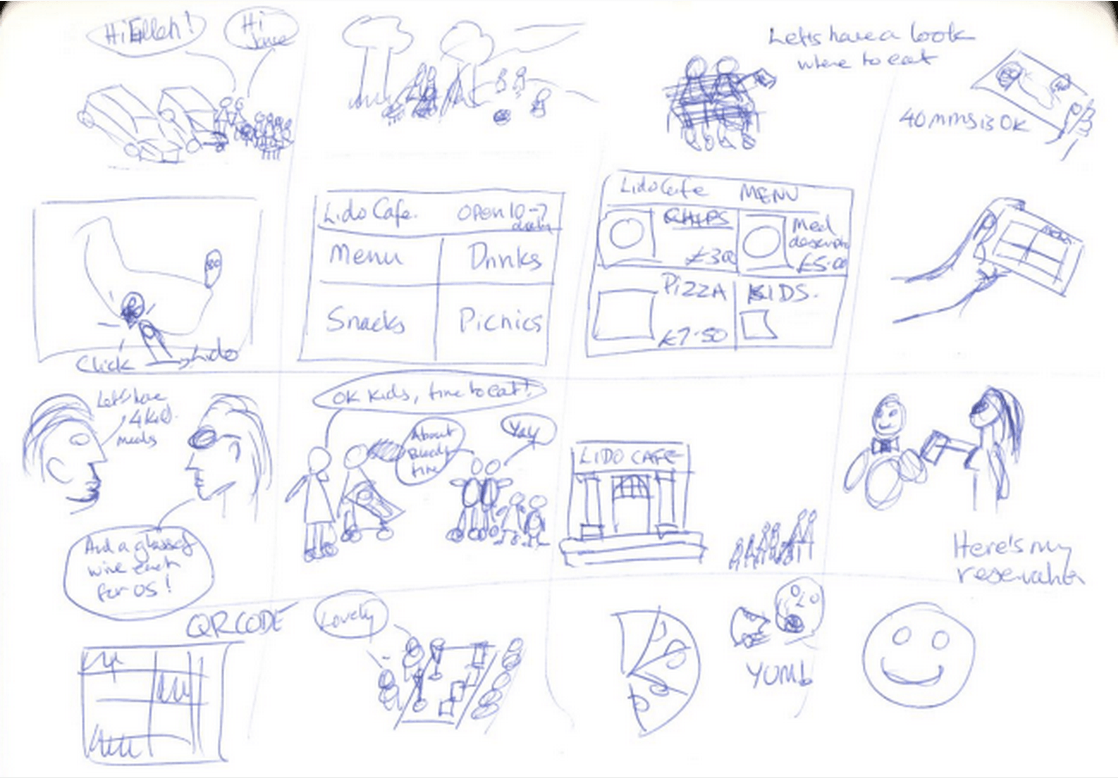 Hi Ellen!
Hi
Jane
Let's have a look
where to eat
40 mins is OK
Click
Lido
Lido Cafe.
OPEN 10-7
daily
Menu
Drinks
Snacks
Picnics
Lido Cafe MENU
CHIPS
£3.00
Med
£5.00
PIZZA
£7.50
KIDS.
MENU
Let's have
4 kid
meals
And a glass of
wine each
for us!
OK kids, time to eat!
About
time
Yay
LIDO CAFE
Here's my
reservation
QR CODE
Lovely
YUM!